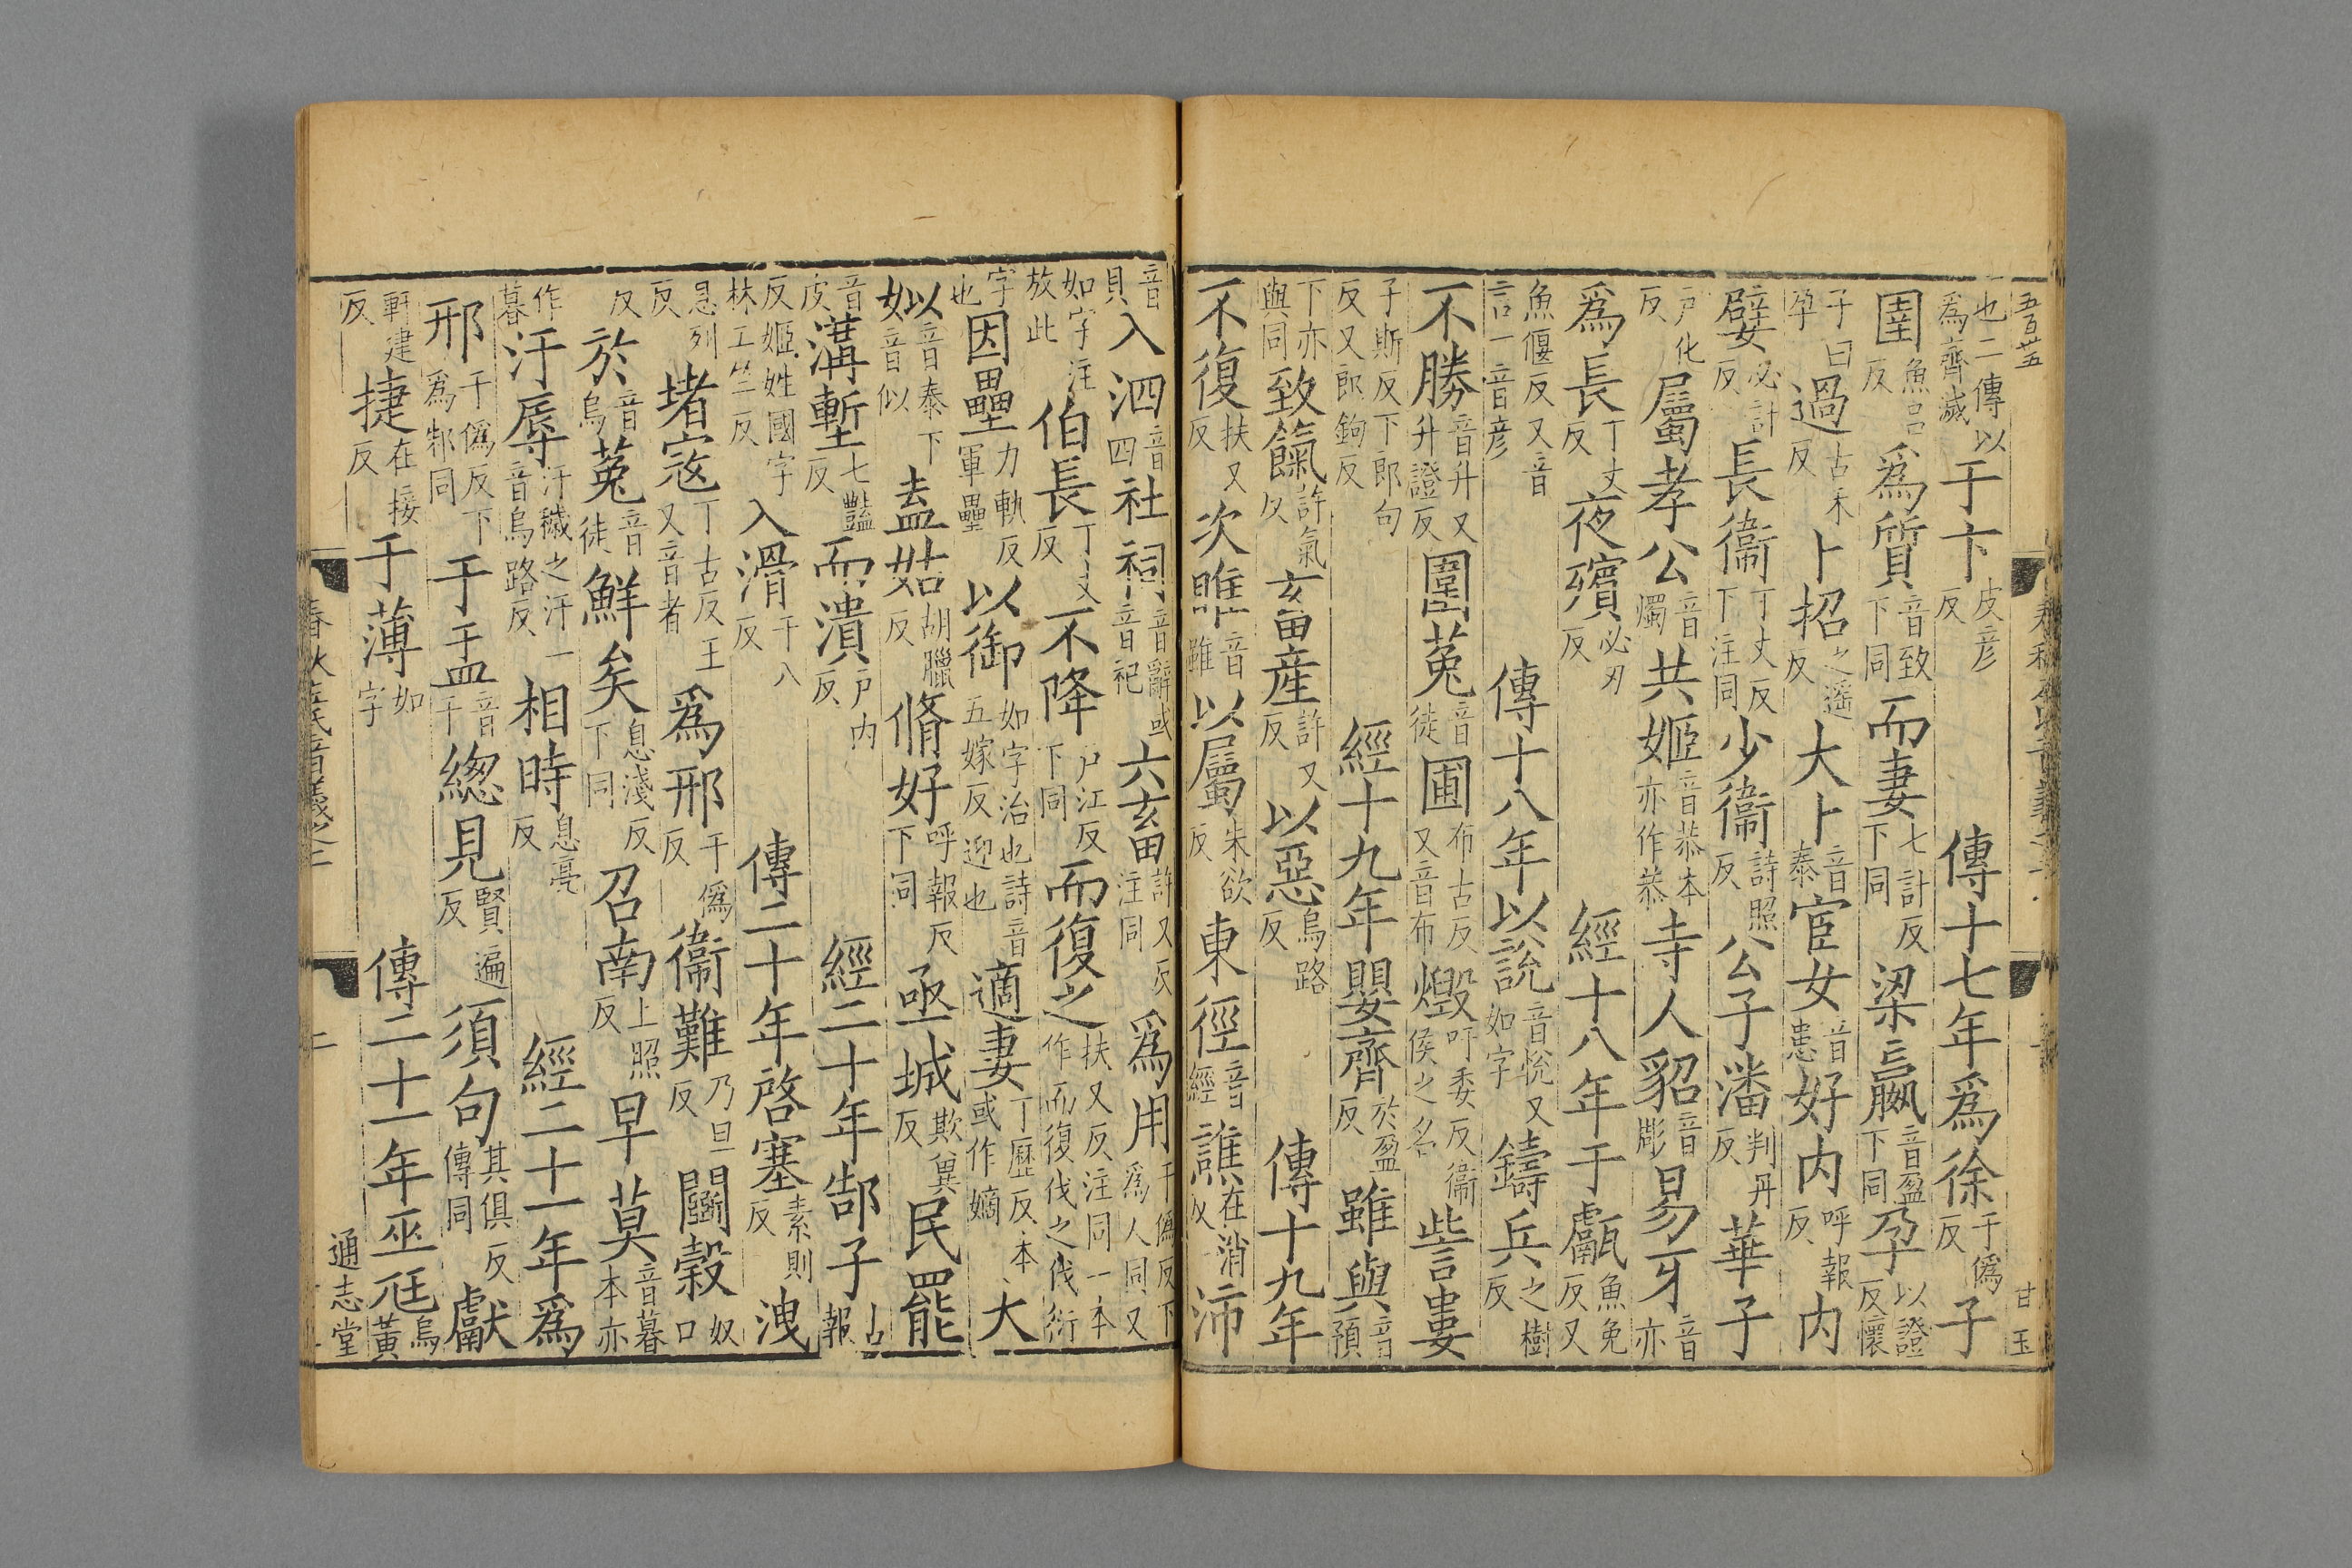 五百廿五 春秋左氏音義之二 甘玉
也二傳以爲齊滅于卞皮彥反 傳十七年爲徐于僞反子
圉魚呂反爲質音致下同而妻七計反下同梁嬴音盈下同孕以證反懷
子曰孕過古禾反卜招之遥反大卜音泰宦女音患好内呼報反内
嬖必計反長衞丁丈反下注同少衞詩照反公子潘判丹反華子
戸化反屬孝公音燭共姬音恭本亦作恭寺人貂音彫易牙音亦
爲長丁丈反夜殯必刃反 經十八年于甗魚免反又
魚偃反又音言一音彥 傳十八年以說音悅又如字鑄兵之樹反
不勝音升又升證反圍菟音徒圃布古反又音布燬吁委反衞侯之名訾婁
子斯反下郎句反又郎鉤反 經十九年嬰齊於盈反雖與音預
下亦與同致餼許氣反畜産許又反以惡烏路反 傳十九年
不復扶又反次睢音雖以屬朱欲反東徑音經譙在消反沛
音貝入泗音四社祠音辭或音祀六畜許又反注同爲用于僞反下爲人同又
如字注放此伯長丁丈反不降戸江反下同而復之扶又反注同一本作而復伐之伐衍
字也因壘力軌反軍壘以御如字治也詩音五嫁反迎也適妻丁歷反本或作嫡大
姒音泰下音似盍姑胡臘反脩好呼報反下同亟城欺兾反民罷
音皮溝塹七豔反而潰戸内反 經二十年郜子古報
反姬姓國字林工竺反入滑于八反 傳二十年啓塞素則反洩
息列反堵寇丁古反王又音者爲邢于僞反衞難乃旦反鬬穀奴口
反於音烏菟音徒鮮矣息淺反下同召南上照反早莫音暮本亦
作暮汙辱汙穢之汙一音烏路反相時息亮反 經二十一年爲
邢于僞反下爲邾同于盂音于緫見賢遍反須句其俱反傳同獻
軒建反捷在接反于薄如字 傳二十一年巫尫烏黃
春秋左氏音義之二 二 通志堂